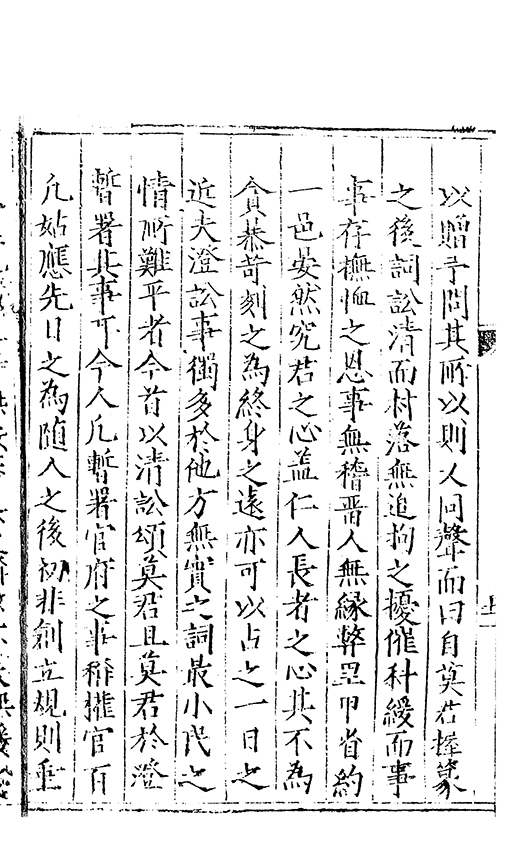 以贈予問其所以則人同聲而曰自莫君握篆
之後詞訟清而村落無追拘之擾催科緩而事
事存撫恤之恩事無稽晋人無緣弊里甲省約
一邑晏然究君之心盖仁人長者之心其不為
貪恭苛刻之為終身之遠亦可以占之一日之
近夫澄訟事獨多於他方無實之詞最小民之
情所難平者今首以清訟頌莫君且莫君於澄
暫署其事下今人凢暫署官府之事稱權官百
凢姑應先日之為随人之後初非創立規則垂
上